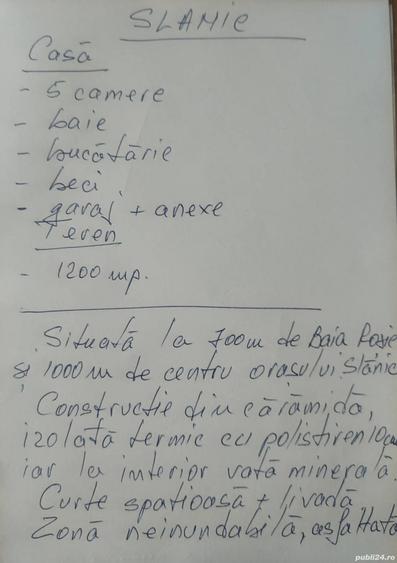 SLANIC
Casă
- 5 camere
- baie
- bucătărie
- beci
- garaj + anexe
Teren
- 1200 mp.
Situată la 700m de Baia Roșie
și 1000m de centru orașului Slănic
Construcție din cărămidă,
izolată termic cu polistiren 10cm
iar la interior vată minerală.
Curte spațioasă + livadă
Zonă neinundabilă, asfaltată
publi24.ro